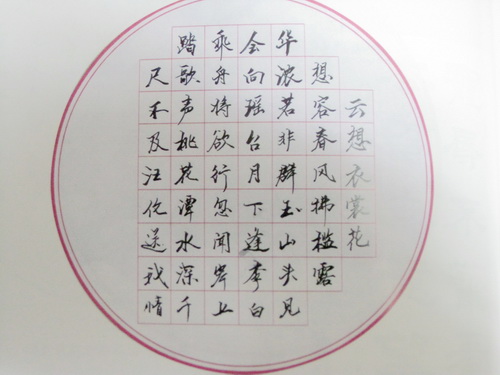 云想衣裳花
想容春风拂槛露
华浓若非群玉山头见
会向瑶台月下逢李白
乘舟将欲行忽闻岸上
踏歌声桃花潭水深千
尺不及汪伦送我情